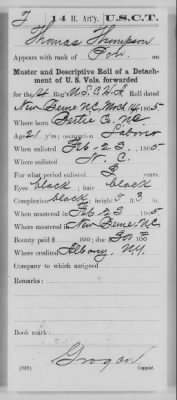 T 14 H. Art'y. U.S.C.T.
Thomas Thompson
Appears with rank of Pvt. on
Muster and Descriptive Roll of a Detach-
ment of U. S. Vols. forwarded
for the 14 Reg't U.S.C.H.A. Roll dated
New Berne N.C. Mch 14, 1865
Where born Pettie Co. N.C.
Age 21 y'rs; occupation Laborer
When enlisted Feb 23, 1865
Where enlisted N. C.
For what period enlisted 3 years.
Eyes black; hair black
Complexion black; height 5 ft. 3 in.
When mustered in Feb 23, 1865
Where mustered in New Berne N.C.
Bounty paid $ 100; due $ 300 100
Where credited Albany N.Y.
Company to which assigned
Remarks:
Book mark:
Grogan
Copyist.